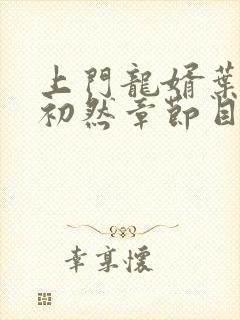 上門龍婿葉
初然章節目
幸享懷